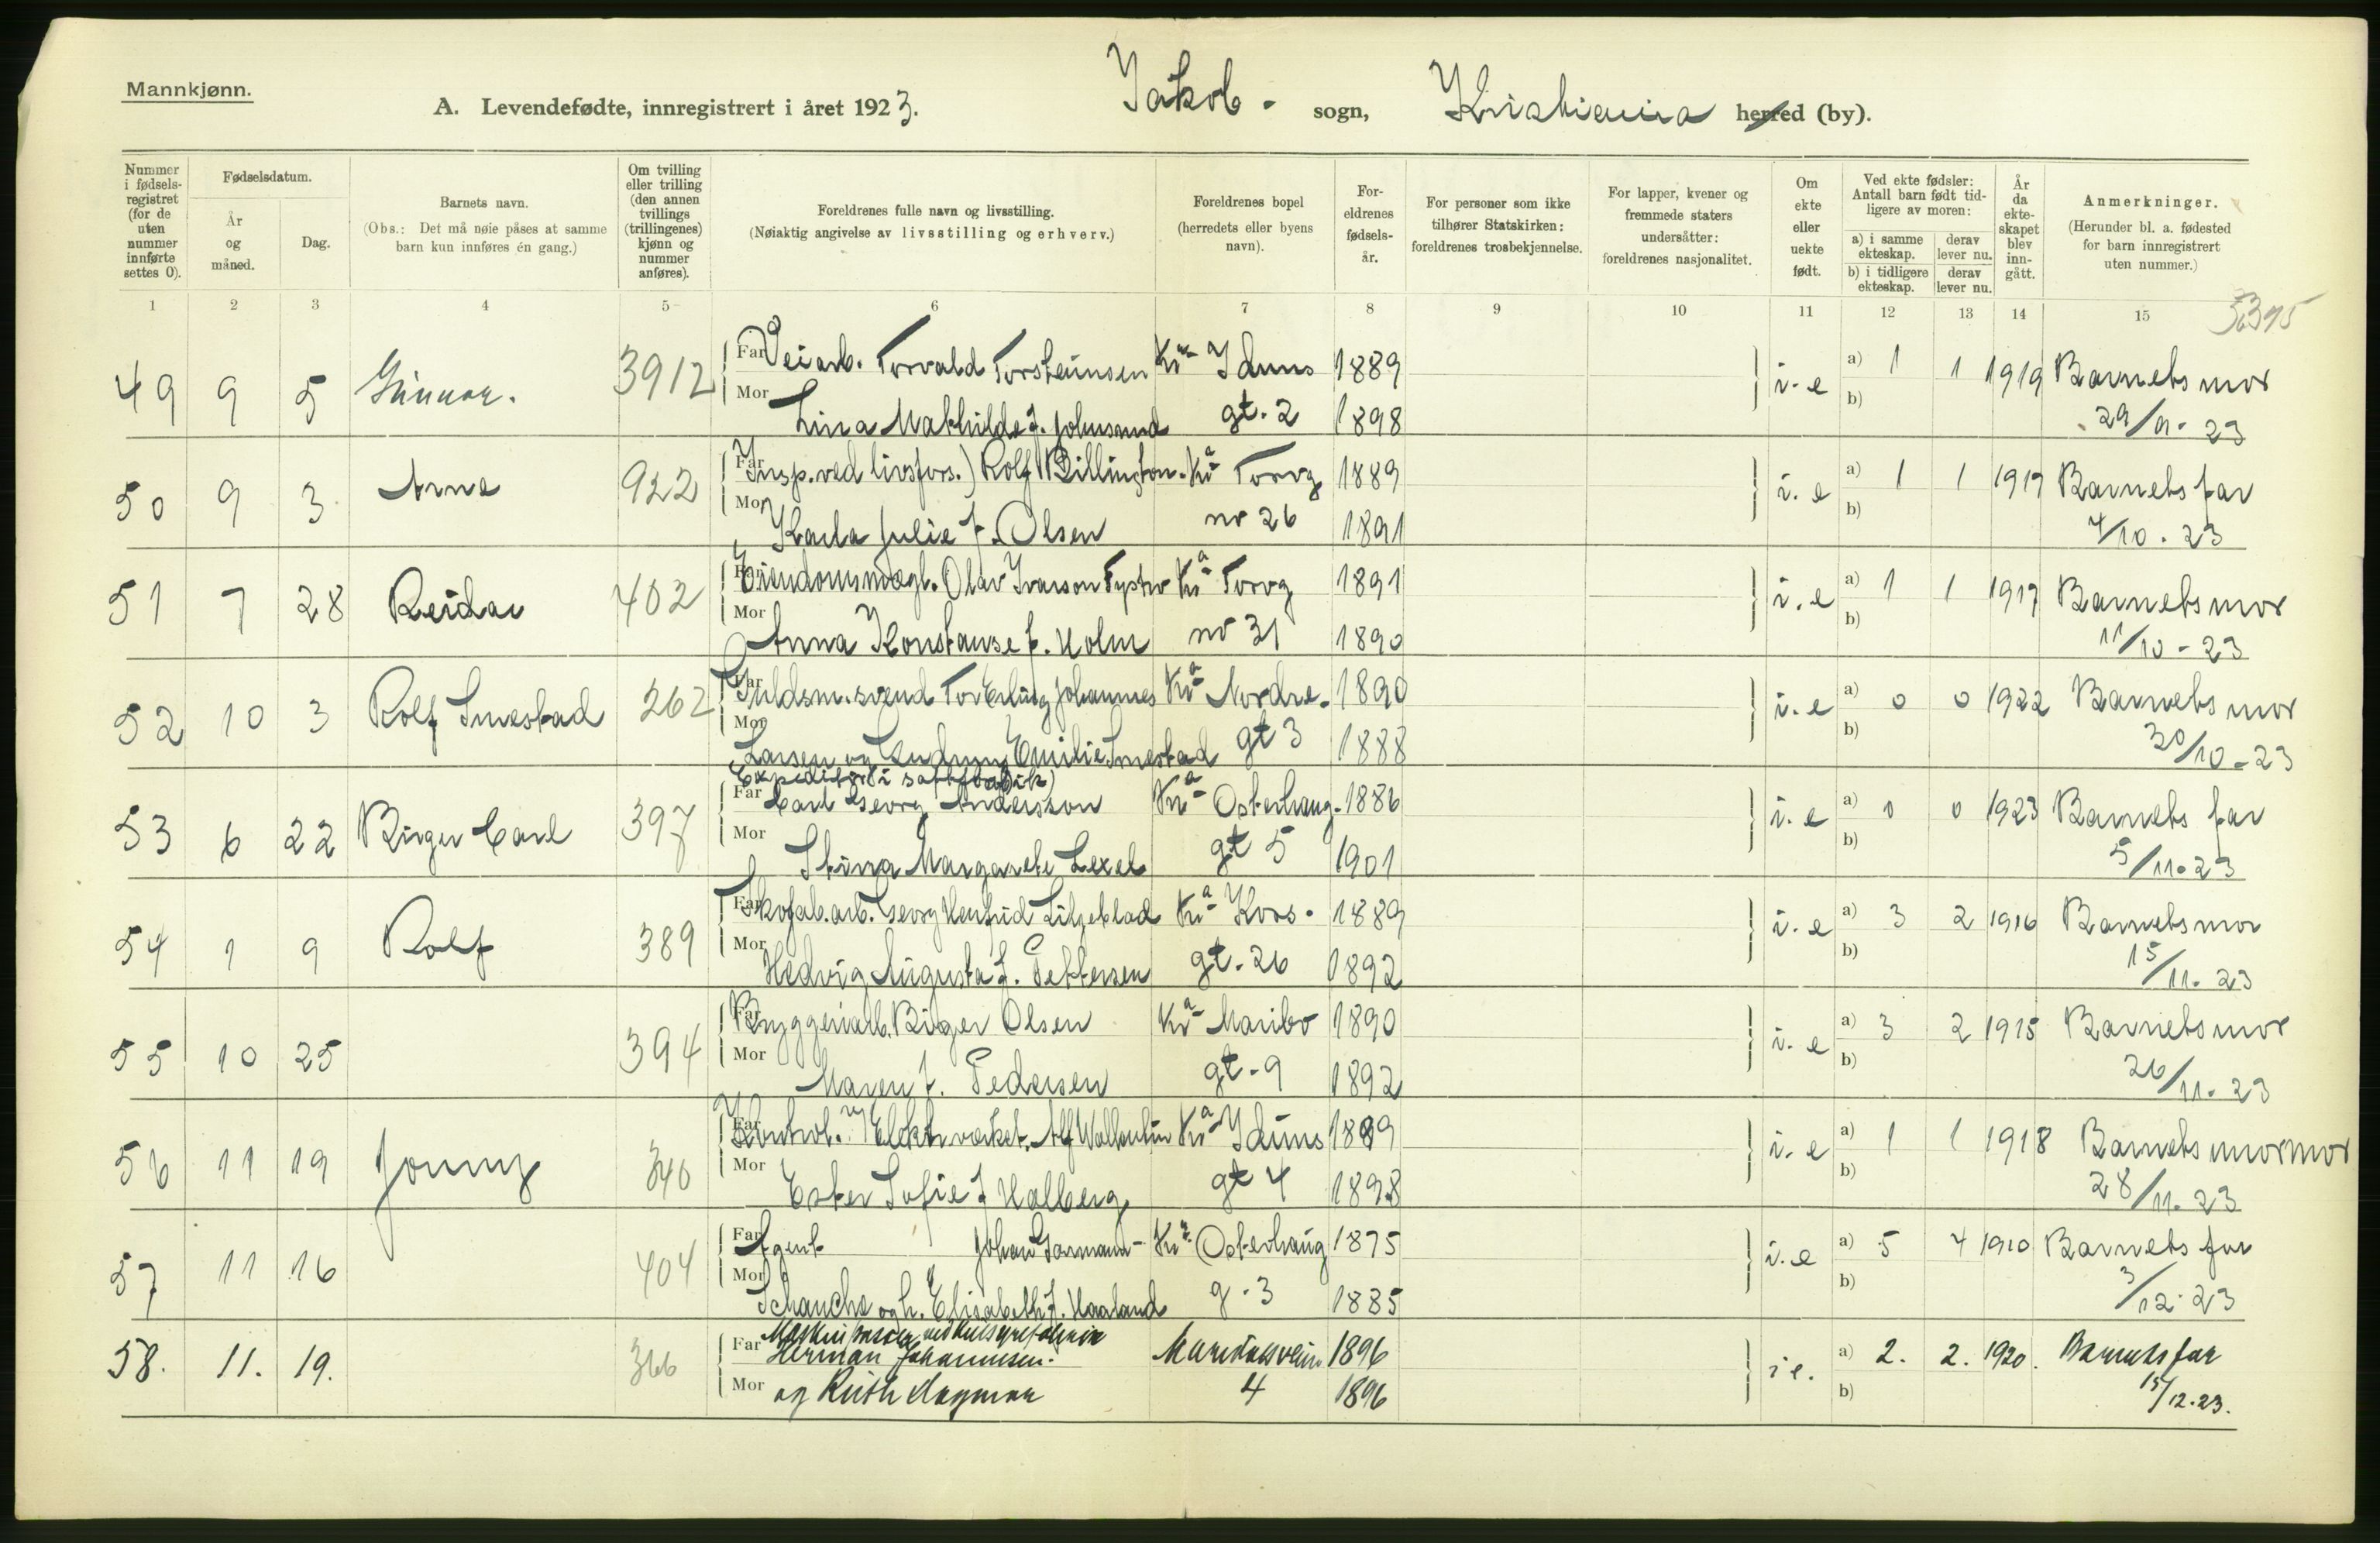 Mannkjønn.
A. Levendefødte, innregistrert i året 1923. Jakob - sogn, Kristiania herred (by).
Nummer i fødselsregistret (for de uten nummer innførte settes 0).
Fødselsdatum.
År og måned.
Dag.
Barnets navn.
(Obs.: Det må nøie påses at samme barn kun innføres én gang.)
Om tvilling eller trilling (den annen tvillings (trillingenes) kjønn og nummer anføres).
Foreldrenes fulle navn og livsstilling.
(Nøiaktig angivelse av livsstilling og erhverv.)
Foreldrenes bopel
(herredets eller byens navn).
Foreldrenes fødselsår.
For personer som ikke tilhører Statskirken: foreldrenes trosbekjennelse.
For lapper, kvener og fremmede staters undersåtter: foreldrenes nasjonalitet.
Om ekte eller uekte født.
Ved ekte fødsler: Antall barn født tidligere av moren:
a) i samme ekteskap.
derav lever nu.
b) i tidligere ekteskap.
derav lever nu.
År da ekteskapet blev inngått.
Anmerkninger.
(Herunder bl. a. fødested for barn innregistrert uten nummer.)
1 2 3 4 5 6 7 8 9 10 11 12 13 14 15
49 9 5 Gunnar. 3912 Far Veiarb. Torvald Torsteinsen Kr.a Iduns 1889 i. e a) 1 1 1919 Barnets mor
Mor Lina Mathilde f. Johnsrud gt. 2 1898 b) 29/9 - 23
50 9 3 Arne 922 Far Insp. ved livsfors.) Rolf Billington. Kr.a Torvg 1889 i. e a) 1 1 1917 Barnets far
Mor Karla Julie f. Olsen no 26 1891 b) 4/10 . 23
51 7 28 Reidar 402 Far Eiendomsmægl. Olav Ivarson Kr.a Torvg 1891 i. e a) 1 1 1917 Barnets mor
Mor Anna Konstanse f. Holm no 31 1890 b) 11/10 - 23
52 10 3 Rolf Smestad 262 Far Guldsm. svend Tor Erling Johannes Kr.a Nordre 1890 i. e a) 0 0 1922 Barnets mor
Mor Larsen og Gudrun Emilie Smestad gt 3 1888 b) 30/10 - 23
53 6 22 Birger Carl 397 (Expeditør i saftfabrik)
Far Carl Georg Andersson Kr.a Osterhaug- 1886 i. e a) 0 0 1923 Barnets far
Mor Stina Margarete Lexel gt 5 1901 b) 5/11. 23
54 1 9 Rolf 389 Far Skofab.arb. Georg Henfrid Liljeblad Kr.a Kors- 1889 i. e a) 3 2 1916 Barnets mor
Mor Hedvig Augusta f. Pettersen gt. 26 1892 b) 15/11. 23
55 10 25 394 Far Bryggeriarb. Birger Olsen Kr.a Maribo 1890 i. e a) 3 2 1915 Barnets mor
Mor Maren f. Pedersen gt. 9 1892 b) 26/11. 23
56 11 19 Jonny 340 Far Kontrol. v/Elektr. verket. Alf Wallentin Kr.a Iduns 1889 i. e a) 1 1 1918 Barnets mormor
Mor Ester Sofie f Halberg gt 4 1898 b) 28/11. 23
57 11 16 404 Far Agent Johan Garmann- Kr.a Osterhaug 1875 i. e a) 5 4 1910 Barnets far
Mor Schanche og h. Elisabeth f. Haaland g. 3 1885 b) 3/12. 23
58. 11. 19. 366 Maskinpasser ved
Far Herman Johannesen. Maridalsveien 1896 i e. a) 2. 2. 1920. Barnets far
Mor og Ruth Dagmar 4 1896 b) 15/12.23.